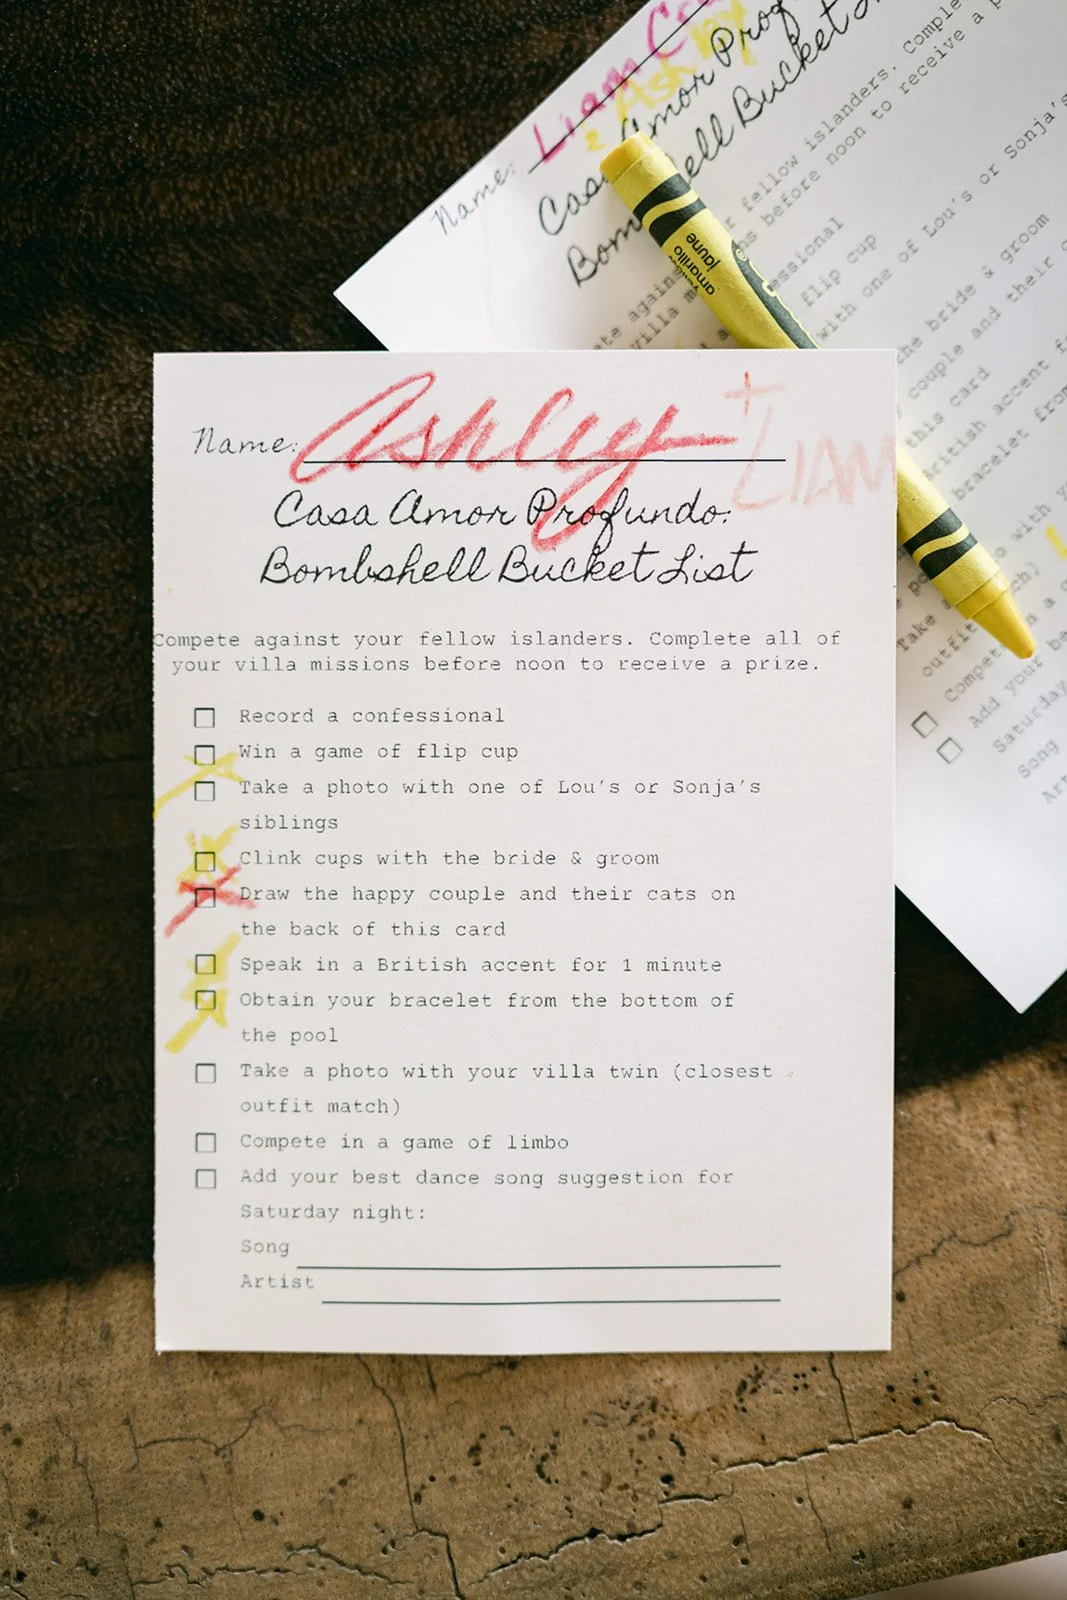 Name: Ashley + LIAM
Casa Amor Profundo:
Bombshell Bucket List
Compete against your fellow islanders. Complete all of
your villa missions before noon to receive a prize.
Record a confessional
Win a game of flip cup
Take a photo with one of Lou's or Sonja's
siblings
Clink cups with the bride & groom
Draw the happy couple and their cats on
the back of this card
Speak in a British accent for 1 minute
Obtain your bracelet from the bottom of
the pool
Take a photo with your villa twin (closest
outfit match)
Compete in a game of limbo
Add your best dance song suggestion for
Saturday night:
Song
Artist
Name: Liam
Ash
Amor
Bucket
fellow islanders.
before noon to receive a
flip cup
with one of Lou's or Sonja's
the bride & groom
couple and their
this card
British accent
bracelet from
with
Take
Compete
Add your
Saturday
Song
amarillo
jaune